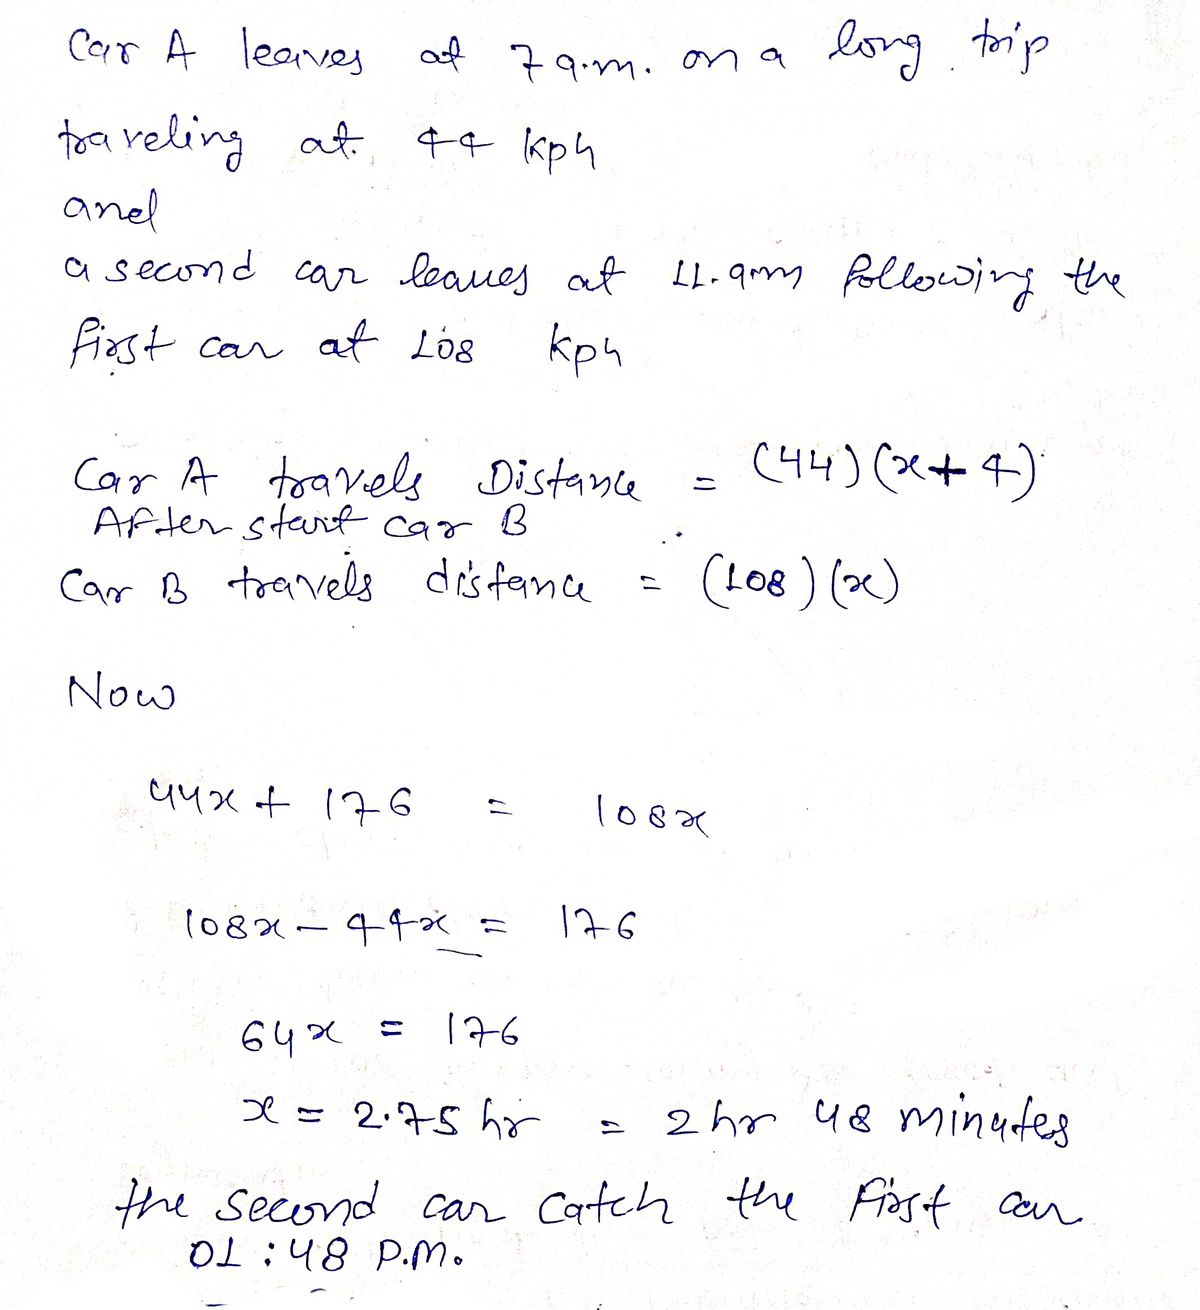 Car A leaves at 7 a.m. on a long trip
traveling at 44 kph
and
a second car leaves at 11.am following the
first car at 108 kph
Car A travels Distance = (44)(x+4)
After start car B
Car B travels distance = (108)(x)
Now
44x + 176 = 108x
108x - 44x = 176
64x = 176
x = 2.75 hr = 2 hr 48 minutes
the second car catch the first car
01:48 P.M.